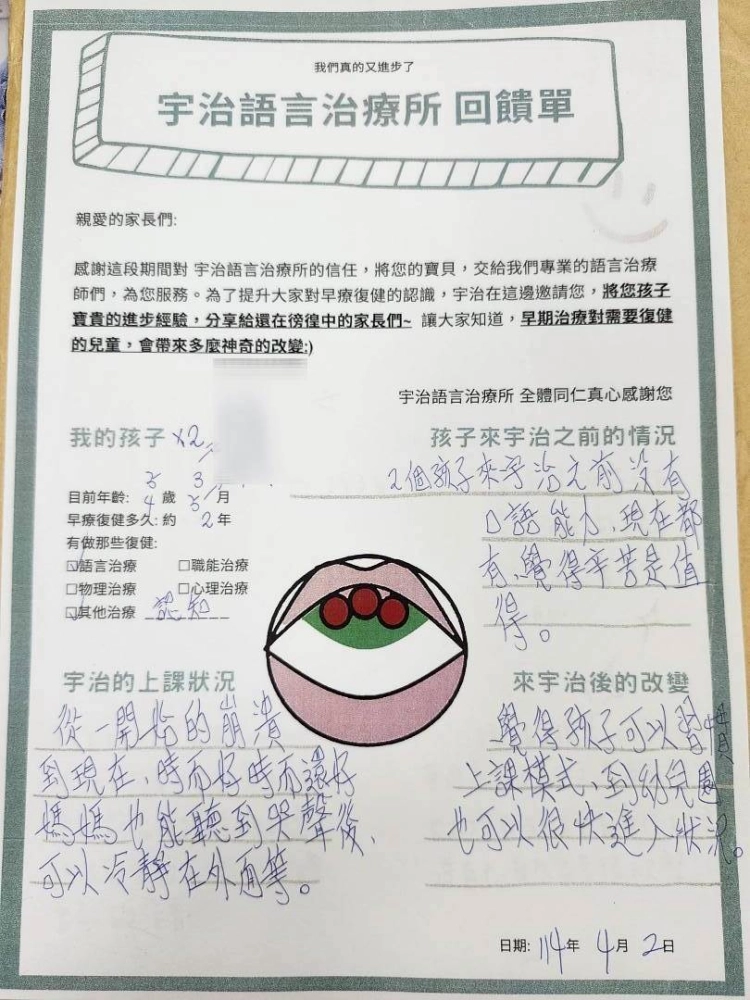 我們真的又進步了
宇治語言治療所 回饋單
親愛的家長們:
感謝這段期間對 宇治語言治療所的信任，將您的寶貝，交給我們專業的語言治療
師們，為您服務。為了提升大家對早療復健的認識，宇治在這邊邀請您，將您孩子
寶貴的進步經驗，分享給還在徬徨中的家長們~ 讓大家知道，早期治療對需要復健
的兒童，會帶來多麼神奇的改變:)
宇治語言治療所 全體同仁真心感謝您
我的孩子 x2
目前年齡: 4 歲 月
早療復健多久: 約 2 年
有做那些復健:
☑語言治療 □職能治療
□物理治療 □心理治療
☑其他治療 認知
孩子來宇治之前的情況
2個孩子來宇治之前沒有
口語能力,現在都
有,覺得辛苦是值
得。
宇治的上課狀況
從一開始的崩潰
到現在、時而好時而還好
媽媽也能聽到哭聲後、
可以冷靜在外面等。
來宇治後的改變
覺得孩子可以習慣
上課模式、到幼兒園
也可以很快進入狀況。
日期: 114年 4月 2日